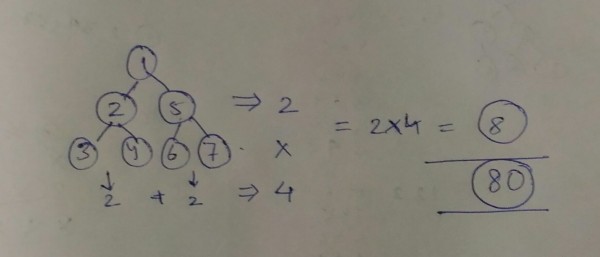 1
2 5 ⇒ 2
= 2x4 = 8
3 4 6 7 . x
80
↓ ↓
2 + 2 ⇒ 4